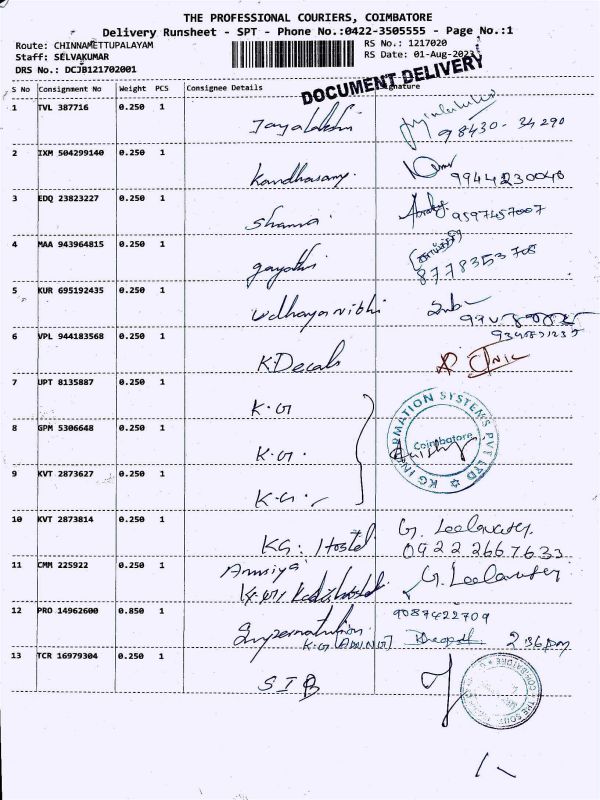 THE PROFESSIONAL COURIERS, COIMBATORE
Delivery Runsheet - SPT - Phone No.:0422-3505555 - Page No.:1
Route: CHINNAMETTUPALAYAM
Staff: SELVAKUMAR
DRS No.: DCJB121702001
RS No.: 1217020
RS Date: 01-Aug-2023
DOCUMENT DELIVERY
S No Consignment No Weight PCS Consignee Details Signature
1 TVL 387716 0.250 1
98430-34290
2 IXM 504299140 0.250 1 Kandhasamy.
9944230040
3 EDQ 23823227 0.250 1 Shama
9597457007
4 MAA 943964815 0.250 1 gayathri
8778353708
5 KUR 695192435 0.250 1 Udhayanithi
6 VPL 944183568 0.250 1 K.Decals
7 UPT 8135887 0.250 1 K.G
8 GPM 5306648 0.250 1 K.G.
KG INFORMATION SYSTEMS PVT LTD
Coimbatore
9 KVT 2873627 0.250 1 K.G.
10 KVT 2873814 0.250 1 KG. Hostel
G. Leelavathy.
0422 2667633
11 CMM 225922 0.250 1
G. Leelavathy
12 PRO 14962600 0.850 1
9087422709
2 36 pm
13 TCR 16979304 0.250 1 SIB
COIMBATORE